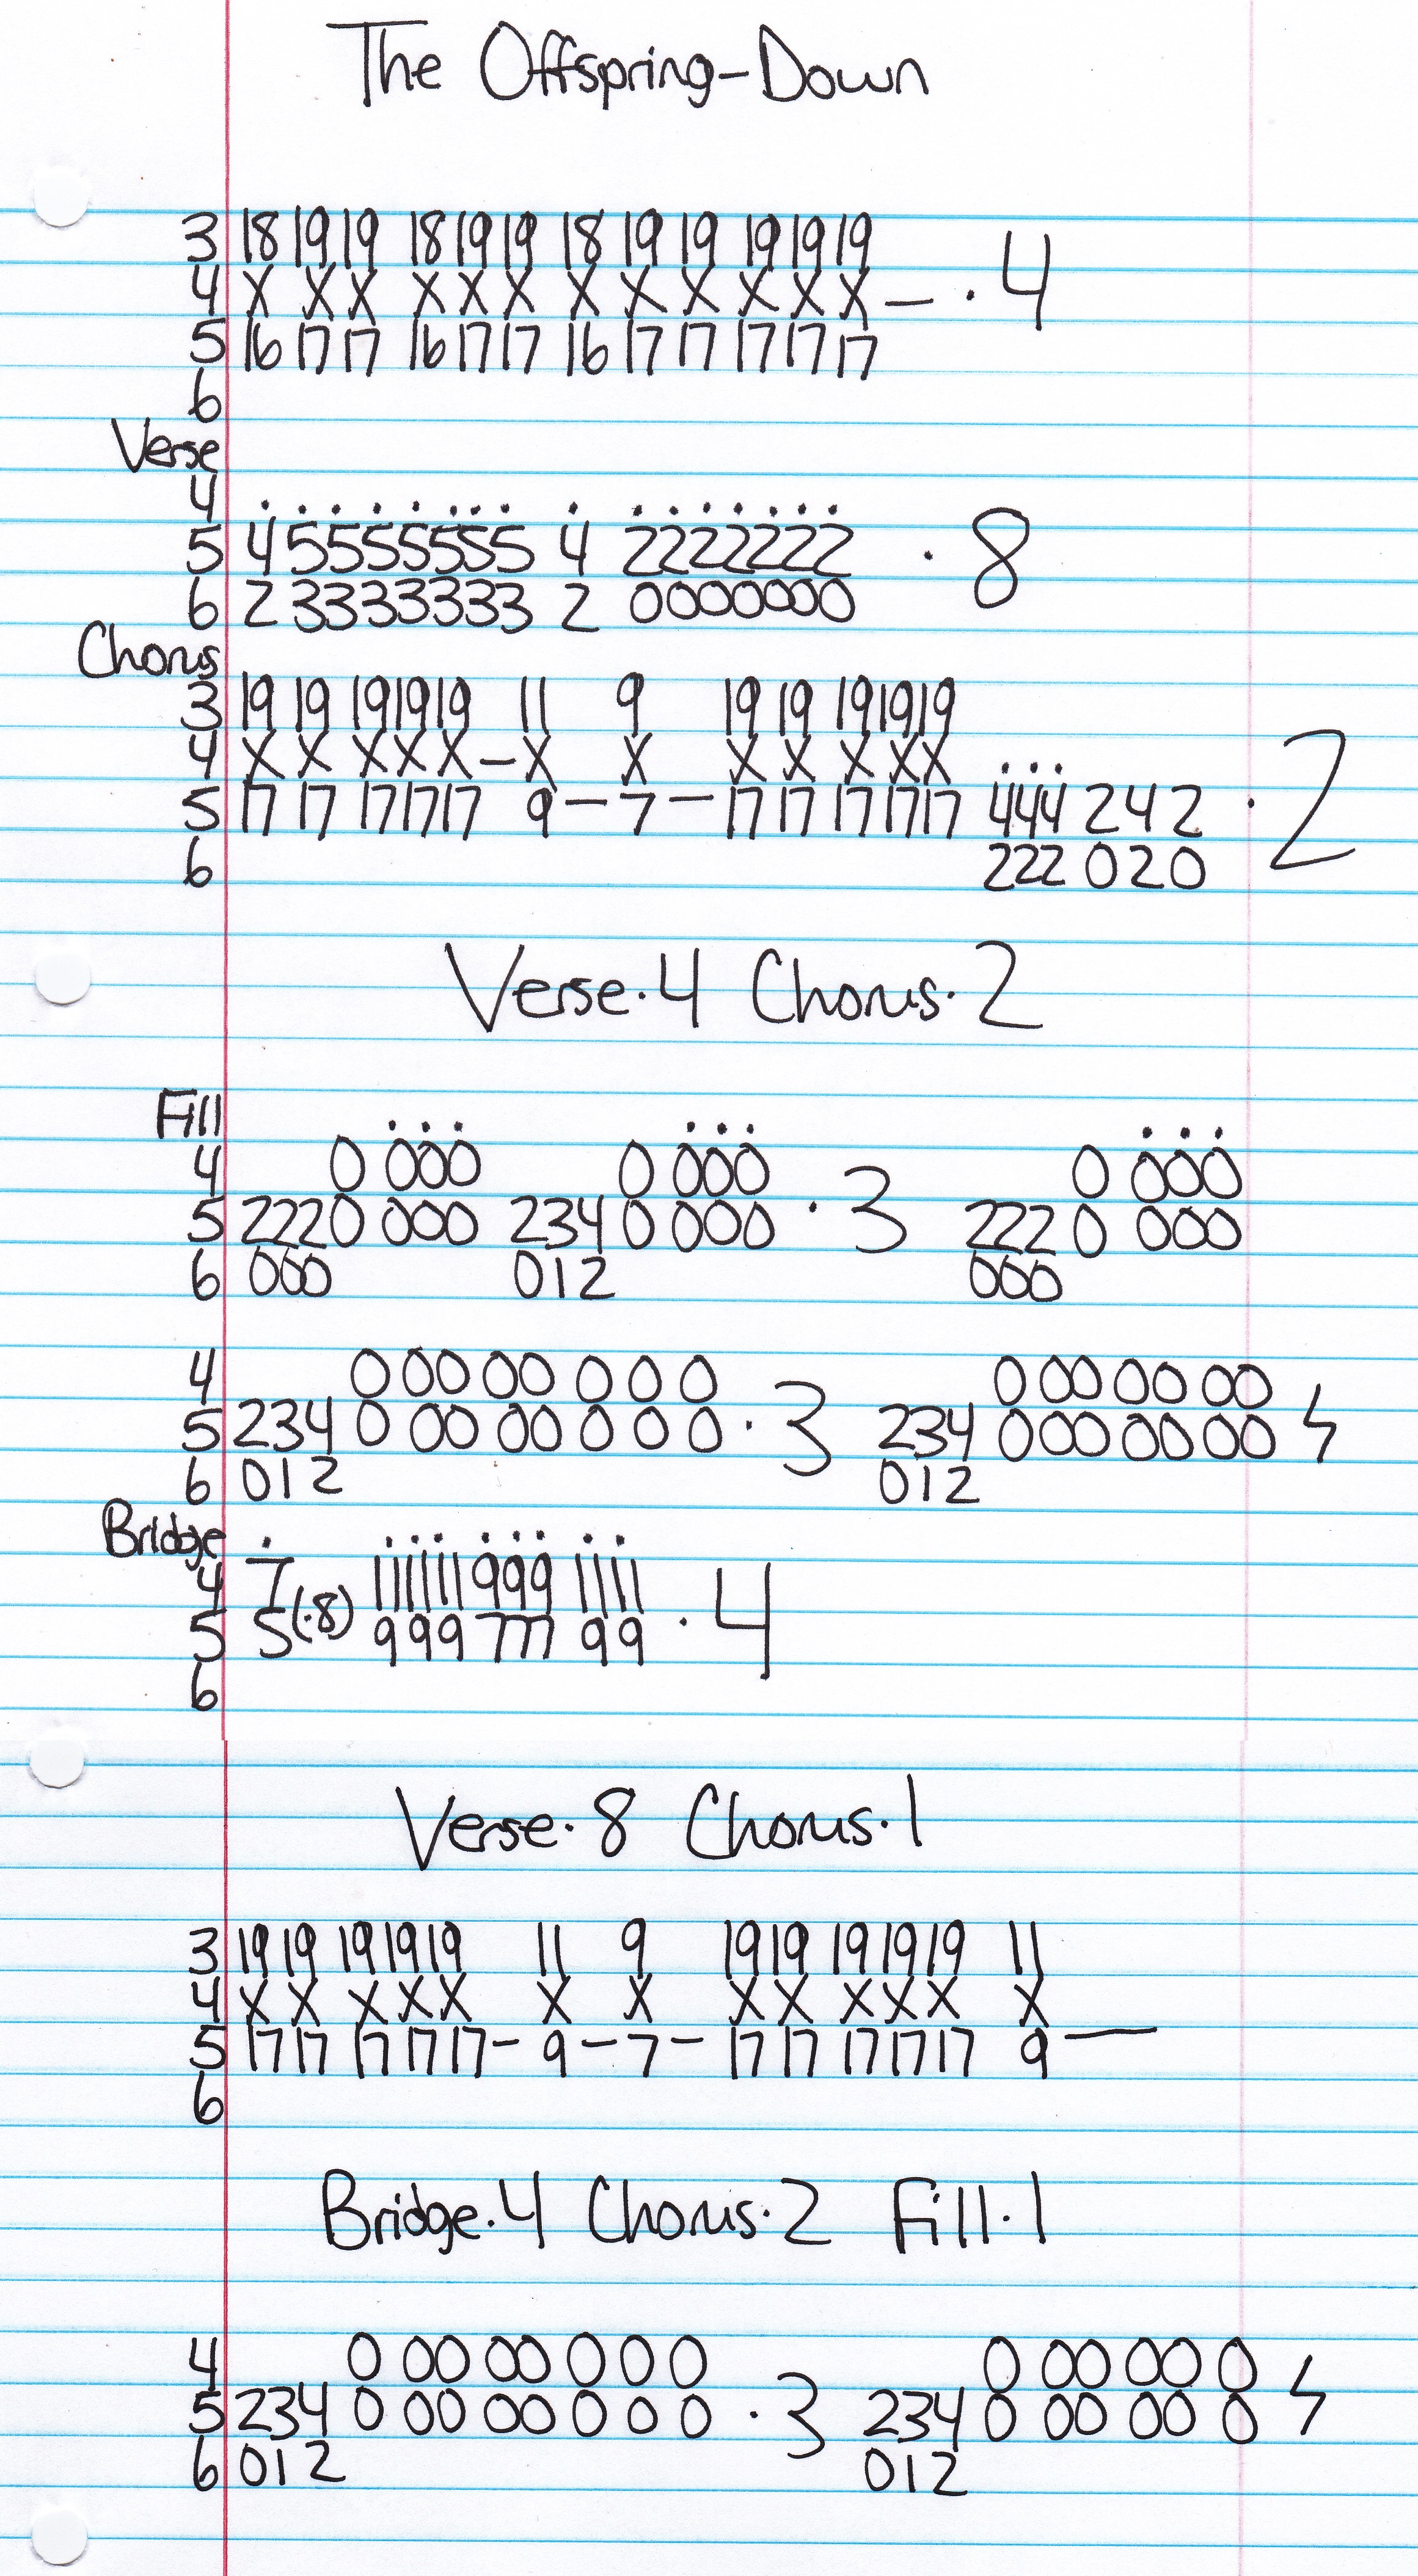 The Offspring-Down
3 18 19 19 18 19 19 18 19 19 19 19 19
4 X X X X X X X X X X X X – · 4
5 16 17 17 16 17 17 16 17 17 17 17 17
6
Verse
4 . . . . . . . . . . . . . . . .
5 4 5555555 4 2222222 · 8
6 2 3333333 2 0000000
Chorus
3 19 19 19 19 19 11 9 19 19 19 19 19
4 X X X X X – X X X X X X X . . .
5 17 17 17 17 17 9 – 7 – 17 17 17 17 17 444 2 4 2 · 2
6 222 0 2 0
Verse·4 Chorus·2
Fill . . . . . . . . .
4 0 000 0 000 0 000
5 2220 000 234 0 000 · 3 222 0 000
6 000 012 000
4 0 00 00 0 0 0 0 00 00 00
5 234 0 00 00 0 0 0 · 3 234 0 00 00 00 ϟ
6 012 012
Bridge . . . . . . . . .
4 7 11 11 11 9 9 9 11 11
5 5(·8) 9 9 9 7 7 7 9 9 · 4
6
Verse·8 Chorus·1
3 19 19 19 19 19 11 9 19 19 19 19 19 11
4 X X X X X X X X X X X X X
5 17 17 17 17 17 – 9 – 7 – 17 17 17 17 17 9 —
6
Bridge·4 Chorus·2 Fill·1
4 0 00 00 0 0 0 0 00 00 0
5 234 0 00 00 0 0 0 · 3 234 0 00 00 0 ϟ
6 012 012